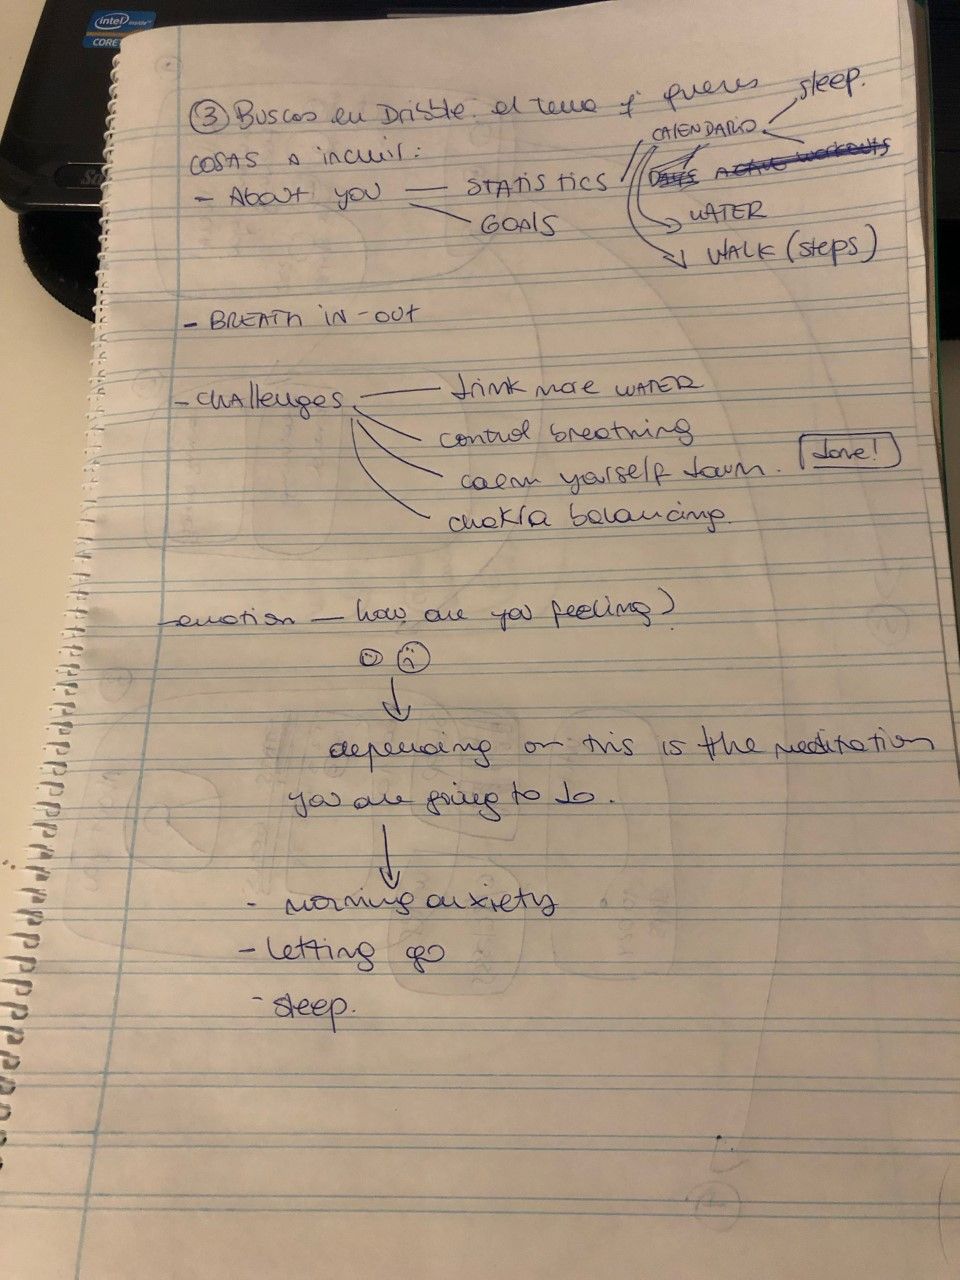 intel inside
CORE
③ Buscas en Dribble el tema q' quieres
sleep.
CALENDARIO
COSAS A incluir:
DAYS ACTIVE WORKOUTS
- About you — STATISTICS
WATER
GOALS
WALK (steps)
- BREATH IN-OUT
- CHAllenges — drink more WATER
control breathing
calm yourself down.
done!
chakra balancing.
- emotion — how are you feeling?
depending on this is the meditation
you are going to do.
- morning anxiety
- letting go
- sleep.